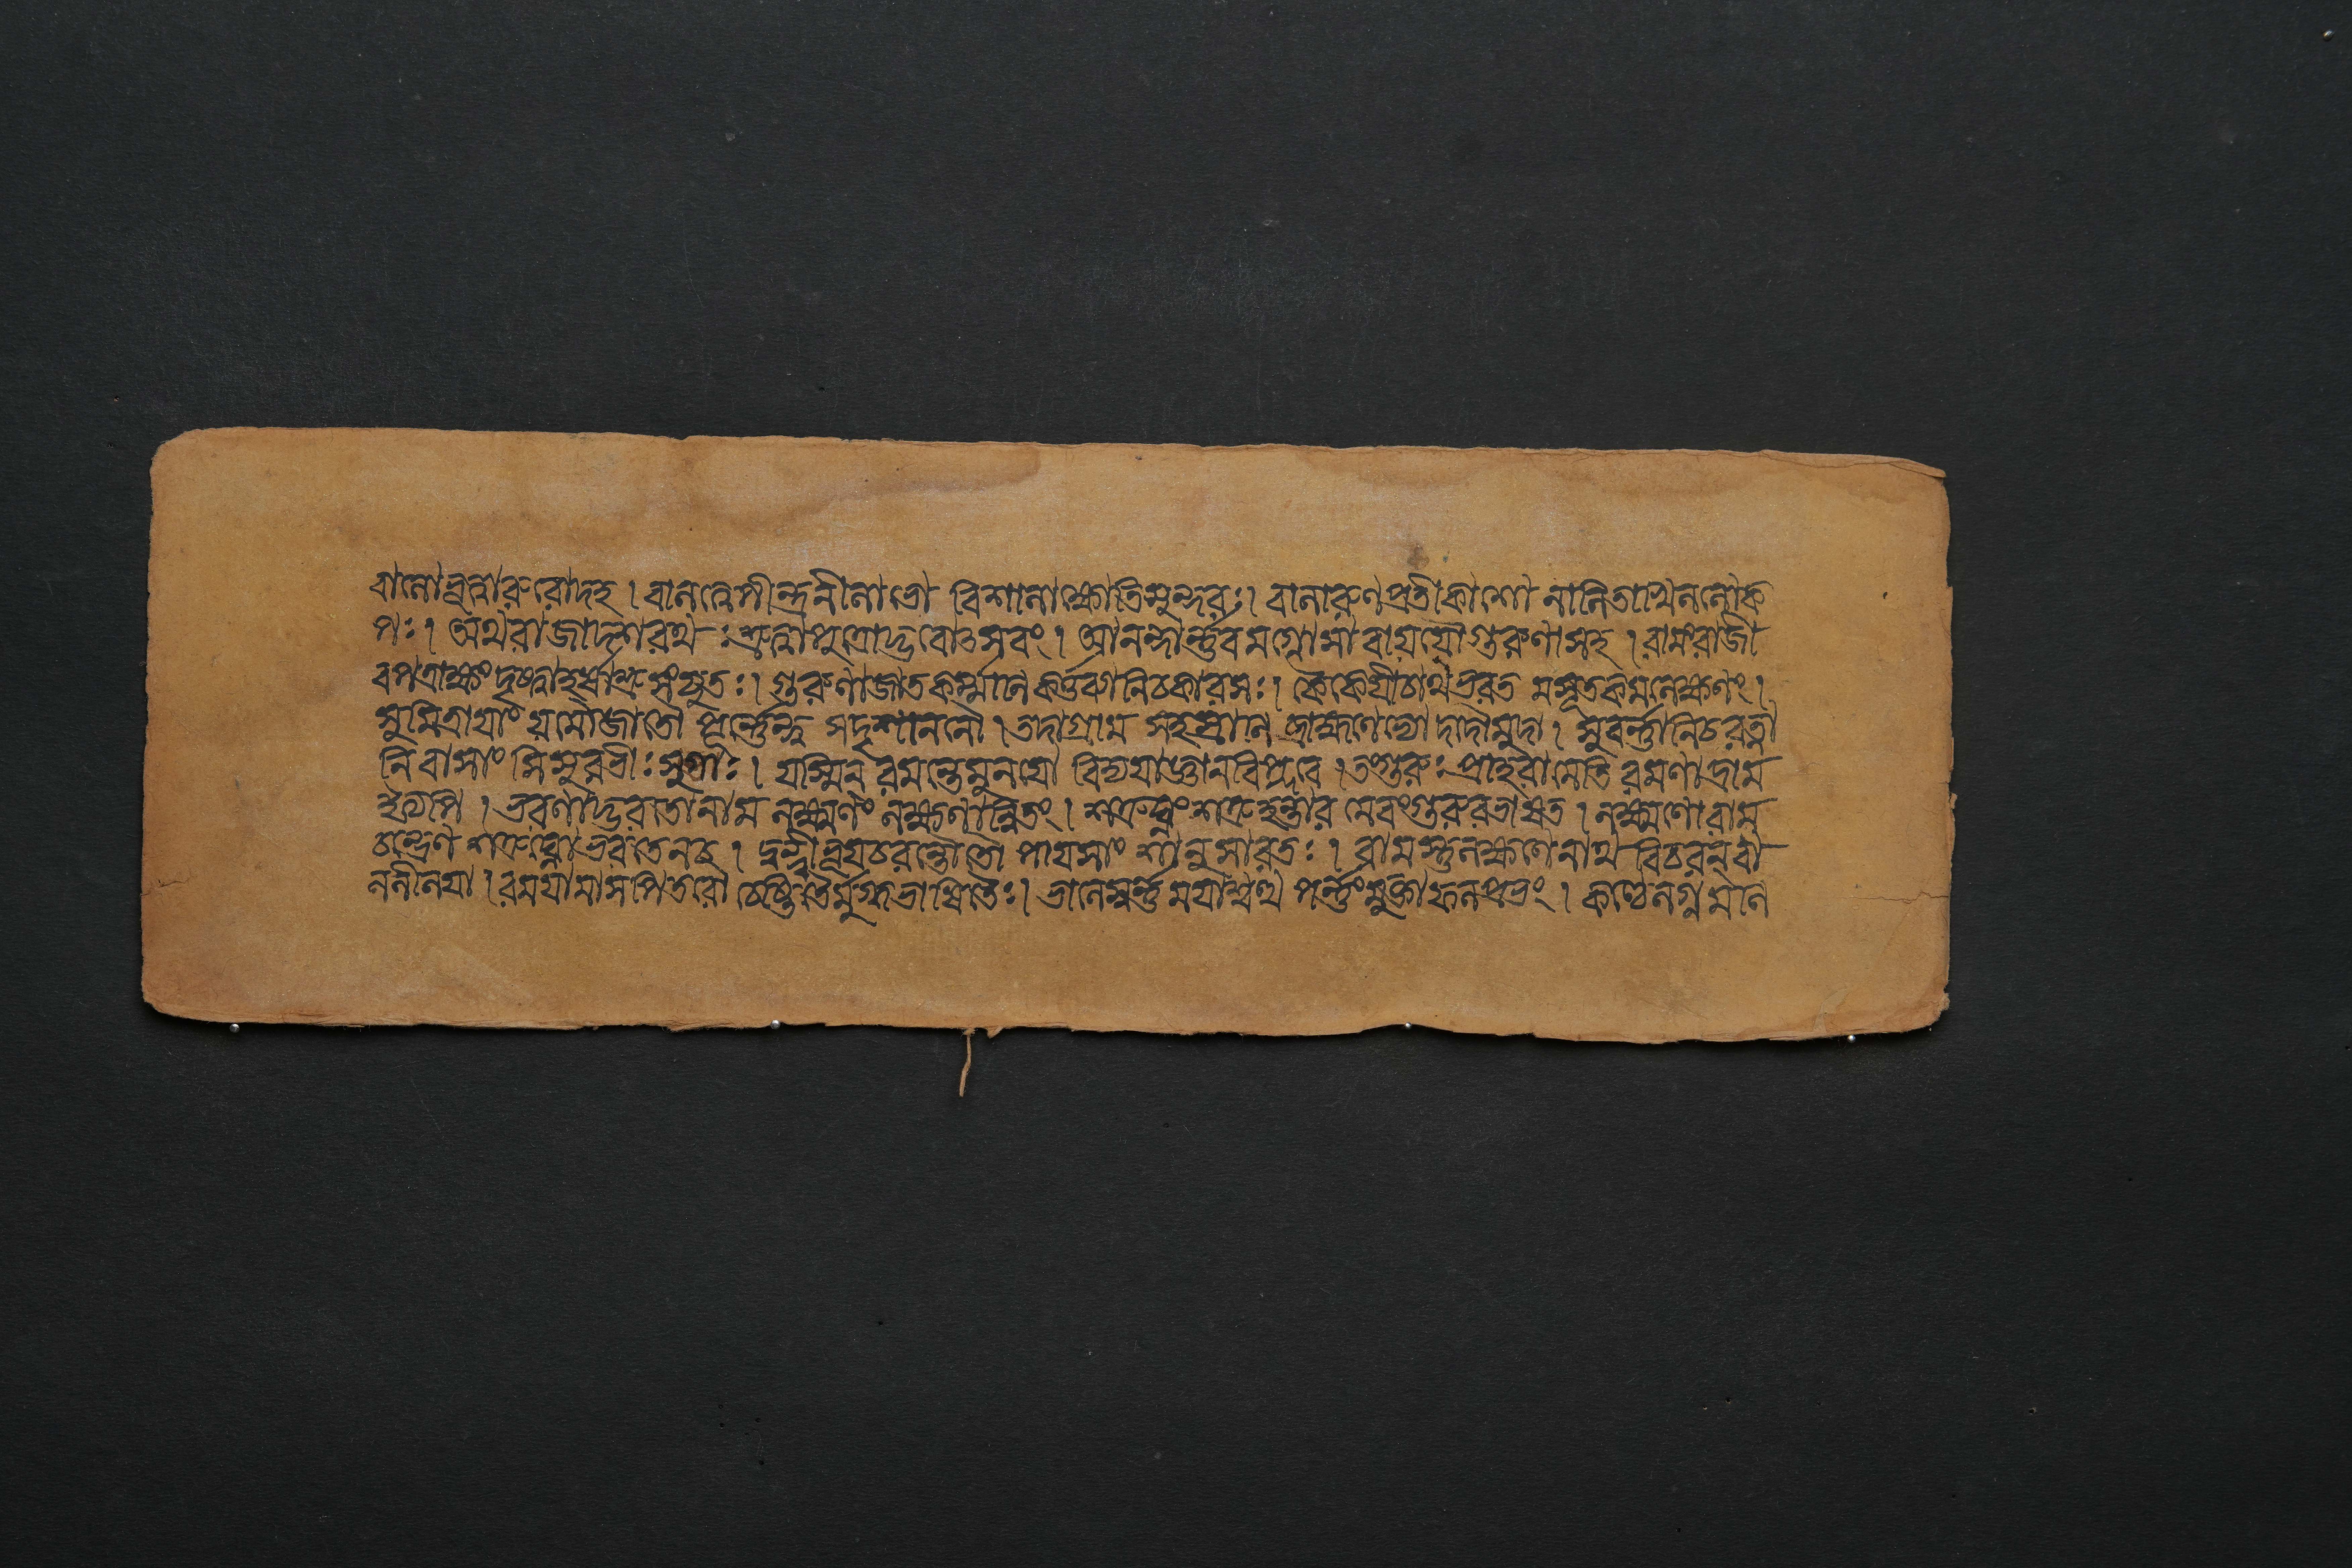 বালোভূত্বারুরোদহ । বালত্বেপীন্দ্রনীলাভো বিশালাক্ষোতিসুন্দরঃ । বালারুণপ্রতীকাশো লালিতাখিললোক
পঃ । অথরাজাদশরথঃশ্রুত্বাপুত্রোদ্ভবোত্সবং । আনন্দার্ন্নবমগ্নোসাবায়যৌগুরুণাসহ । রামংরাজী
বপত্রাক্ষংদৃষ্ট্বাহর্ষাশ্রুসংপ্লুতঃ । গুরুণাজাতকর্ম্মাণিকর্ত্তব্যানিচকারসঃ । কৈকেযীচাথভরত মসূতকমলেক্ষণং ।
সুমিত্রাযাং যমৌজাতৌ পূর্ন্নেন্দু সদৃশাননৌ । তদাগ্রাম সহস্রাণি ব্রাহ্মণেভ্যো দদৌমুদা । সুবর্ন্নানিচরত্না
নি বাসাংসিসুরভীঃসুভাঃ । যস্মিন্ রমন্তেমুনযো বিদ্যযাজ্ঞানবিপ্লবে । তংগুরুঃপ্রাহরামেতি রমণাদ্রাম
ইত্যপি । ভরণাদ্ভরতোনাম লক্ষ্মণং লক্ষণান্বিতং । শত্রুঘ্নং শত্রুহন্তার মেবংগুরুরভাষত । লক্ষ্মণোরাম
চন্দ্রেণ শত্রুঘ্নোভরতেনচ । দ্বন্দ্বীভূযচরন্তৌতৌ পাযসাংশানুসারতঃ । রামস্তুলক্ষ্মণেনাথ বিচরন্ বা
ললীলযা । রমযামাসপিতরৌ চেষ্টিতৈর্মুগ্ধভাষিতৈঃ । ভালেস্বর্ন্নমযাশ্বত্থ পর্ন্নংমুক্তাফলপ্রভং । কণ্ঠেলগ্নমণি